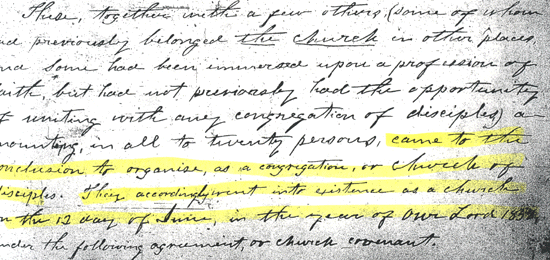 These, together with a few others, (some of whom
ad previously belonged the church in other places
nd some had been immersed upon a profession of
aith but had not previously had the opportunity
f uniting with any congregation of disciples) a-
mounting, in all to twenty persons, came to the
onclusion to organise, as a congregation, or church of
isciples. They accordingly went into existence as a church
n the 12 day of June, in the year of our Lord
nder the following agreement, or church covenant.